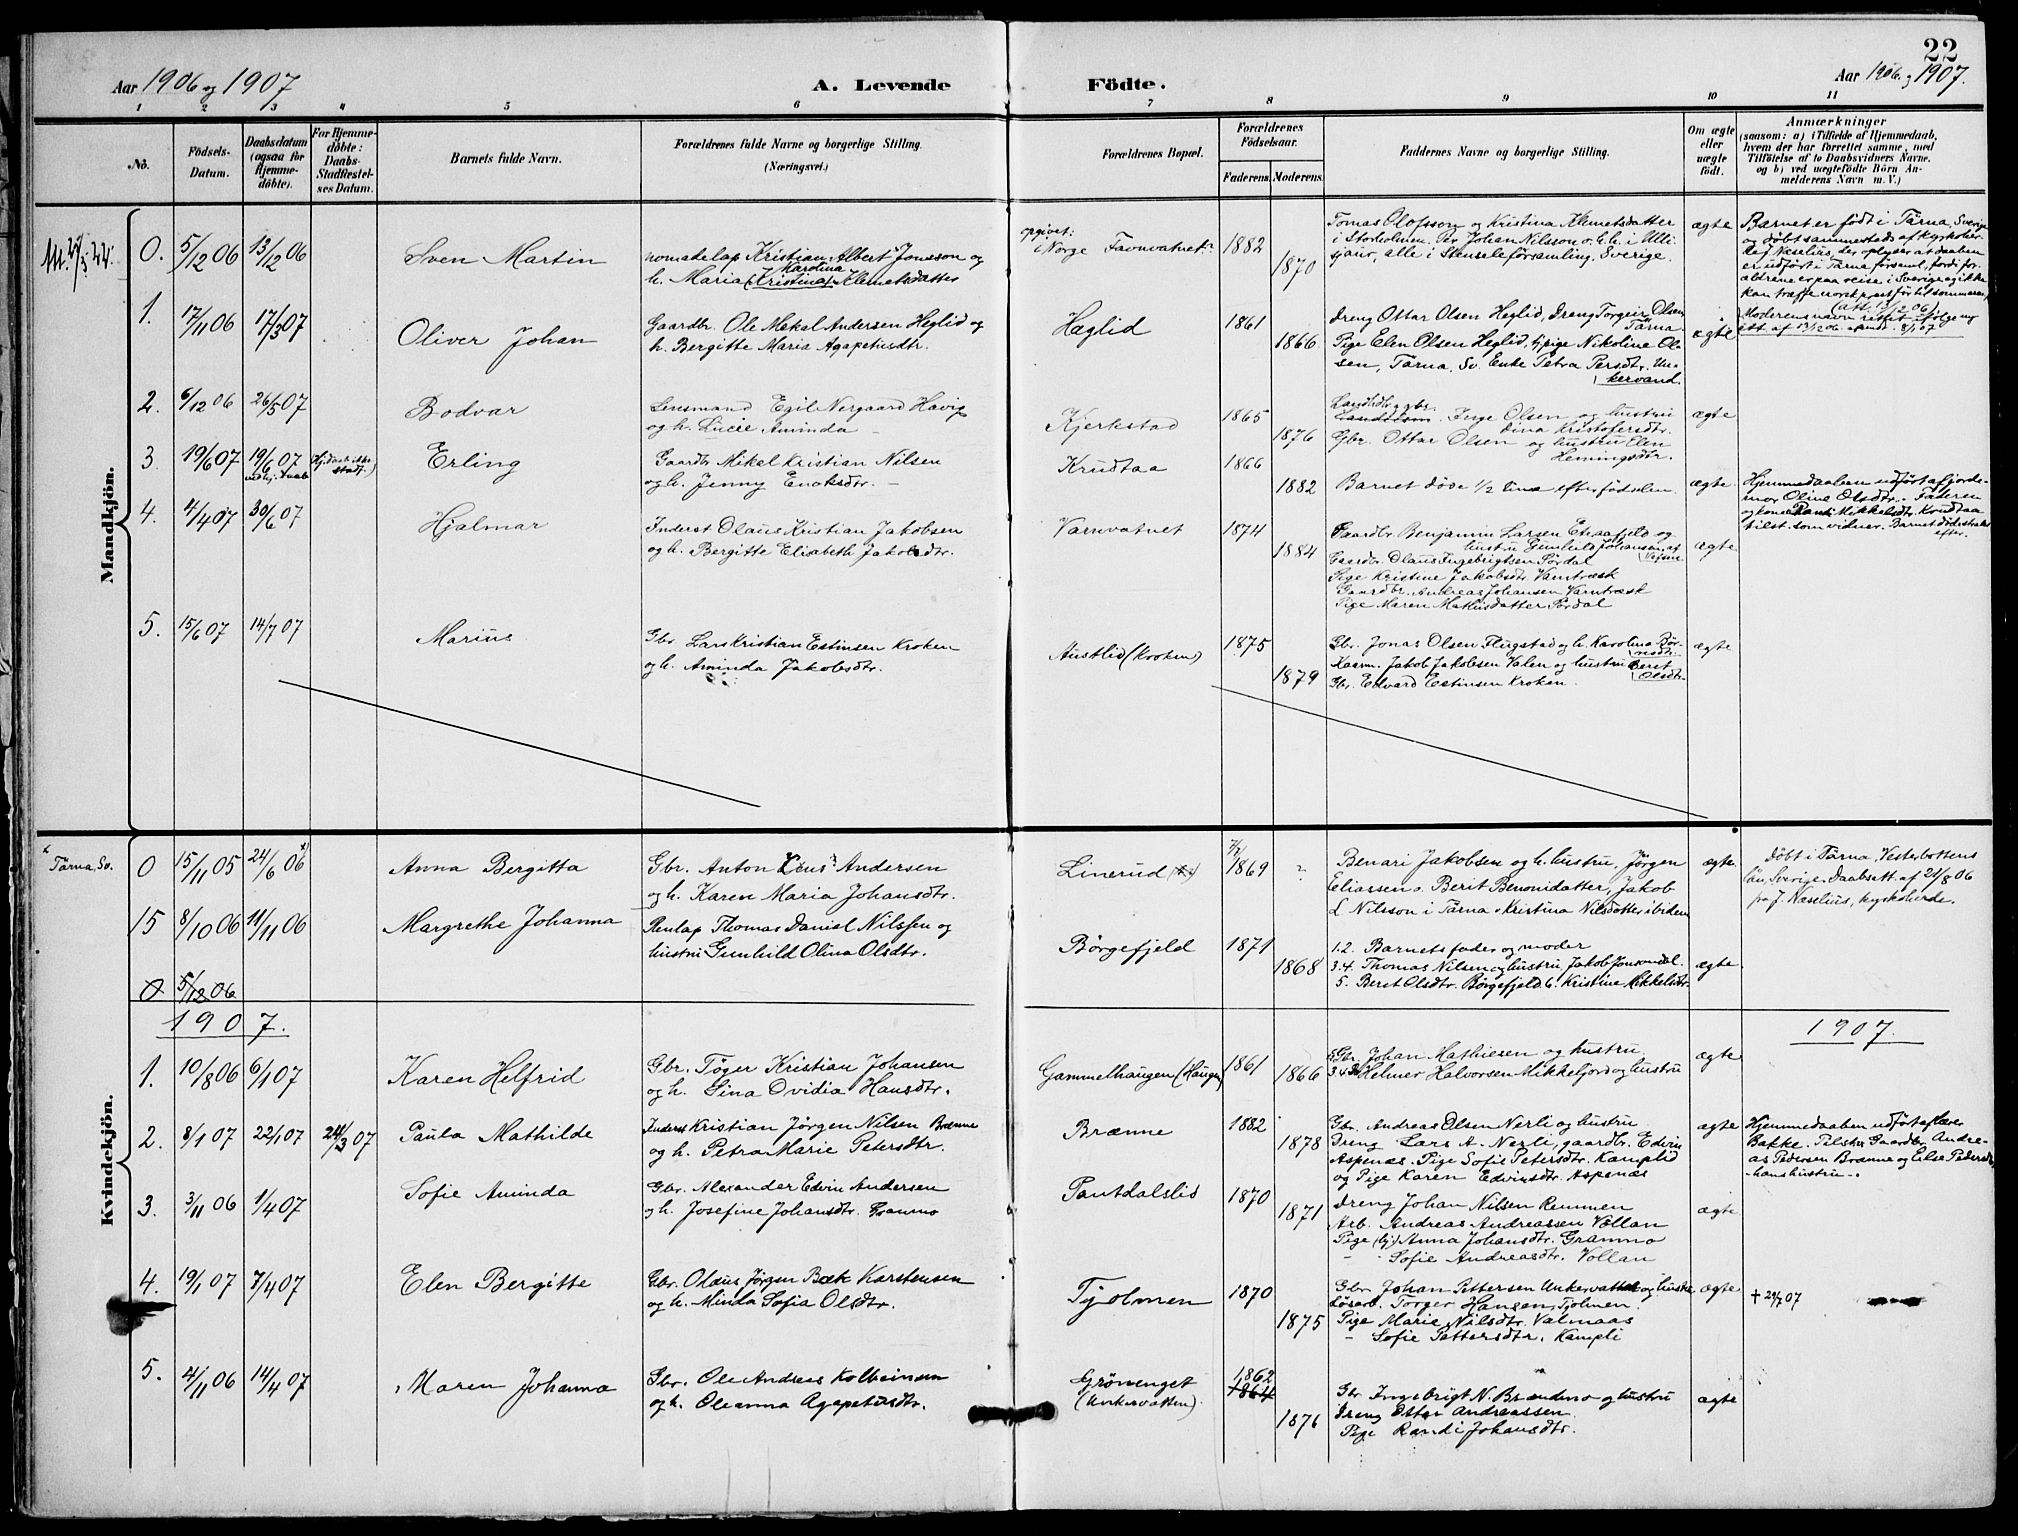 22
Aar 1906 og 1907
A. Levende
Födte.
Aar 1906 og 1907.
1 2 3 4 5 6 7 8 9 10 11
No.
Födsels-
Datum.
Daabsdatum
(ogsaa for
Hjemme-
döbte).
For Hjemme-
döbte:
Daabs-
Stadfæstel-
ses Datum.
Barnets fulde Navn.
Forældrenes fulde Navne og borgerlige Stilling.
(Næringsvei.)
Forældrenes Bopæl.
Forældrenes
Födselsaar.
Faderens. Moderens.
Faddernes Navne og borgerlige Stilling.
Om ægte
eller
uægte
födt.
Anmærkninger
(saasom: a) i Tilfælde af Hjemmedaab,
hvem der har forrettet samme, med
Tilföielse af to Daabsvidners Navne,
og b) ved uægtefödte Börn An-
melderens Navn m. V.)
Mandkjön.
0. 5/12 06 13/12 06 Sven Martin
nomadelap Kristian Albert Jonsson og
Karolina
h. Maria (Kristina) Klemetsdatter
opgivet:
i Norge Favnvatnet
1882
1870
Tomas Olofsson og Kristina Klemetsdatter
i Storholmen. Per Johan Nilsson o. h. h. i Ulli-
sjaur, alle i Stenseleförsamling, Sverige.
ægte
Barnet er født i Tärna, Sverige
og døbt sammesteds af kyrkoher-
de J. Næselius, der oplyser at daaben
er udført i Tärnaførsaml. fordi for-
ældrene er paa reise i Sverige og ikke
kan træffe norsk præst før til sommeren,
(att. 13/12 06)
Moderens navn rettet ifølge ny
att. af 13/12 06 8/1 07
1. 17/11 06 17/3 07 Oliver Johan
Gaardbr. Ole Mekal Andersen Heglid og
h. Bergitte Maria Agapetusdtr.
Heglid
1861
1866
Dreng Ottar Olsen Heglid, Dreng Torgeir Olsen
Tärna
Pige Elen Olsen Heglid, tj. pige Nikoline Ol-
sen, Tärna, Sv. Enke Petra Persdtr. Un-
kervand.
ægte
2. 6/12 06 26/5 07 Bodvar
Lensmand Egil Nergaard Havig
og h. Lucie Aminda
Kjerkstad
1865
1876
Landhdlr. gbr.
Inge Olsen og hustru
Dina Kristofersdtr.
Gbr. Ottar Olsen og hustru Elen
Hemingsdtr.
ægte
3. 19/6 07 19/6 07
ved hj. daab
Erling
Gaardbr Mikel Kristian Nilsen
og h. Jenny Enoksdtr.
Krudtaa
1866
1882
Barnet døde 1/2 time efter fødselen.
ægte
Hjemmedaaben udført af jorde-
mor Oline Olsdtr. Faderen
og kone Randi Mikkelsdtr. Krudtaa
tilst. som vidner. Barnet døde straks
efter.
4. 4/4 07 30/6 07 Hjalmar
Inderst Olaus Kristian Jakobsen
og h. Bergitte Eliabeth Jakobsdtr.
Varnvatnet
1874
1884
Gaardbr Benjamin Larsen Etnafjeld og
hustru Gunhild Johansen, af
Vefsen
Gaardbr. Olaus Ingebrigtsen Sørdal
Pige Kristine Jakobsdtr Varntræsk
Gaardbr. Andreas Johansen Varntræsk
Pige Maren Mathisdatter Sørdal
ægte
5. 15/6 07 14/7 07 Marius
Gbr. Lars Kristian Estinsen Kroken
og h. Aminda Jakobsdtr.
Austlid (Kroken)
1875
1879
Gbr. Jonas Olsen Flugstad og h. Karolina Bør-
resdtr.
Kaarm. Jakob Jakobsen Valen og hustru Beret
Olsdtr.
Gbr. Edvard Estinsen Kroken.
ægte
Kvindekjön.
Tärna, Sv.
0 15/11 05 24/6 06 Anna Bergitta
Gbr. Anton Andersen
og h. Karen Maria Johansdtr.
Linerud
1869
?
Benari Jakobsen og h. hustru, Jørgen
Eliassen o. Berit Benonidatter, Jakob
L Nilsson i Tärna, Kristina Nilsdatter ibidem
ægte
Døbt i Tärna, Vesterbottens
län, Sverige. Daabsatt. af 21/8 06
J. Næselius, kyrkoherde.
15 8/10 06 11/11 06 Margrethe Johanna
Renlap Thomas Daniel Nilssen og
hustru Gunhild Olina Olsdtr.
Børgefjeld
1871
1868
1.2. Barnets fader og moder
3.4. Thomas Nilsen og hustru, Jakob
5. Beret Olsdtr. Børgefjeld 6. Kristine Mikkelsdtr.
ægte
0 5/12 06
1907.
1907.
1. 10/8 06 6/1 07 Karen Helfrid
Gbr. Töger Kristian Johansen
og h. Sina Ovidia Hansdtr.
Gammelhaugen (Haugen)
1861
1866
Gbr. Johan Mathiesen og hustru
Helmer Halvorsen Mikkeljord og hustru
ægte
2. 8/1 07 22/1 07 24/3 07 Paula Mathilde
Inderst Kristian Jörgen Nilsen Brænne
og h. Petra Marie Petersdtr.
Brænne
1882
1878
Gbr. Andreas Olsen Nerli og hustru
Dreng Lars A. Nerli, gaardbr. Edvin
Aspenæs. Pige Sofie Petersdtr. Kamplid
og Pige Karen Edvinsdtr. Aspenæs
ægte
Hjemmedaaben udført af lærer
Bakke. Tilster. Gaardbr. Andre-
as Pedersen Brænne og Else Pedersdtr,
hans hustru.
3. 3/11 06 1/4 07 Sofie Aminda
Gbr. Alexander Edvin Andersen
og h. Josefine Johansdtr. Granmo
Pantdalslid
1870
1871
Dreng Johan Nilsen Remmen
Arb. Andreas Andreassen Vollan
Pige (tj.) Anna Johansdtr. Granmo
— Sofie Andreasdtr. Vollan
ægte
4. 19/1 07 7/4 07 Elen Bergitte
Gbr. Olaus Jørgen Bæk Karstensen
og h. Minda Sofia Olsdtr.
Tjolmen
1870
1875
Gbr. Johan Pettersen Unkervatn og hustru
Løsarb. Torger Hansen, Tjolmen.
Pige Marie Nilsdtr. Valmaas
— Sofie Pettersdtr. Kampli
ægte
† 29/7 07
5. 4/11 06 14/4 07 Maren Johanna
Gbr. Ole Andreas Kolbeinsen
og h. Oleanna Agapetusdtr.
Grönenget
(Unkervatten)
1862
1864
1876
Gbr Ingebrigt N. Brændmo og hustru
Dreng Ottar Andreassen.
Pige Randi Johansdtr.
ægte